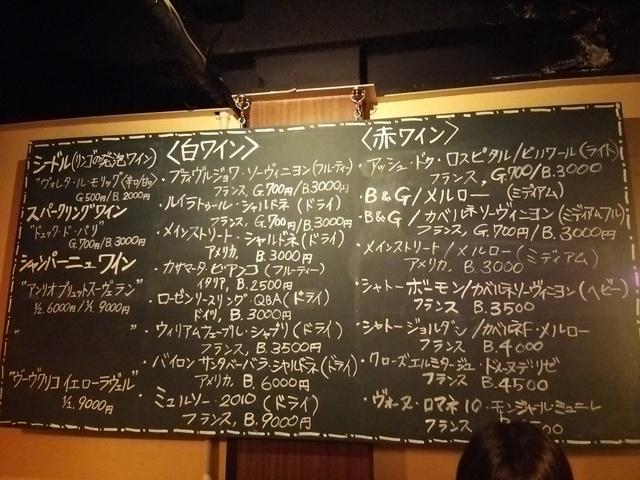 シードル(リンゴの発泡ワイン)
"ヴォレタ・ル・モリッグ〈辛口/甘口〉
G.500円/B.2000円
スパークリングワイン
"デュック・ド・パリ"
G.700円/B.3000円
シャンパーニュワイン
"アンリオブリュットスーヴェラン"
½.6000円/¹⁄₁.9000円
"ヴーヴクリコ イエローラヴェル"
¹⁄₁.9000円
〈白ワイン〉
・プティヴルジョワ・ソーヴィニヨン(フルーティー)
フランス, G.700円/B.3000円
・ルイラトゥール・シャルドネ(ドライ)
フランス, G.700円/B.3000円
・メインストリート・シャルドネ(ドライ)
アメリカ, B.3000円
・カサマータ・ビアンコ(フルーティー)
イタリア, B.2500円
・ローゼンリースリング・QBA(ドライ)
ドイツ, B.3000円
・ウィリアムフェーブル・シャブリ(ドライ)
フランス, B.3500円
・バイロン サンタバーバラ・シャルドネ(ドライ)
アメリカ, B.6000円
・ミュルソー・2010(ドライ)
フランス, B.9000円
〈赤ワイン〉
・アッシュ・ドゥ・ロスピタル/ピノワール(ライト)
フランス, G.700/B.3000
・B&G/メルロー(ミディアム)
・B&G/カベルネソーヴィニヨン(ミディアムフル)
フランス, G.700円/B.3000円
・メインストリート/メルロー(ミディアム)
アメリカ, B.3000
・シャトーボーモン/カベルネソーヴィニヨン(ヘビー)
フランス B.3500
・シャトージョルダン/カベルネF・メルロー
フランス B.4600
・クローズエルミタージュ・ドメーヌデリゼ
フランス B.4500
・ヴォーヌ・ロマネ10・モンジャールミュニレ
フランス